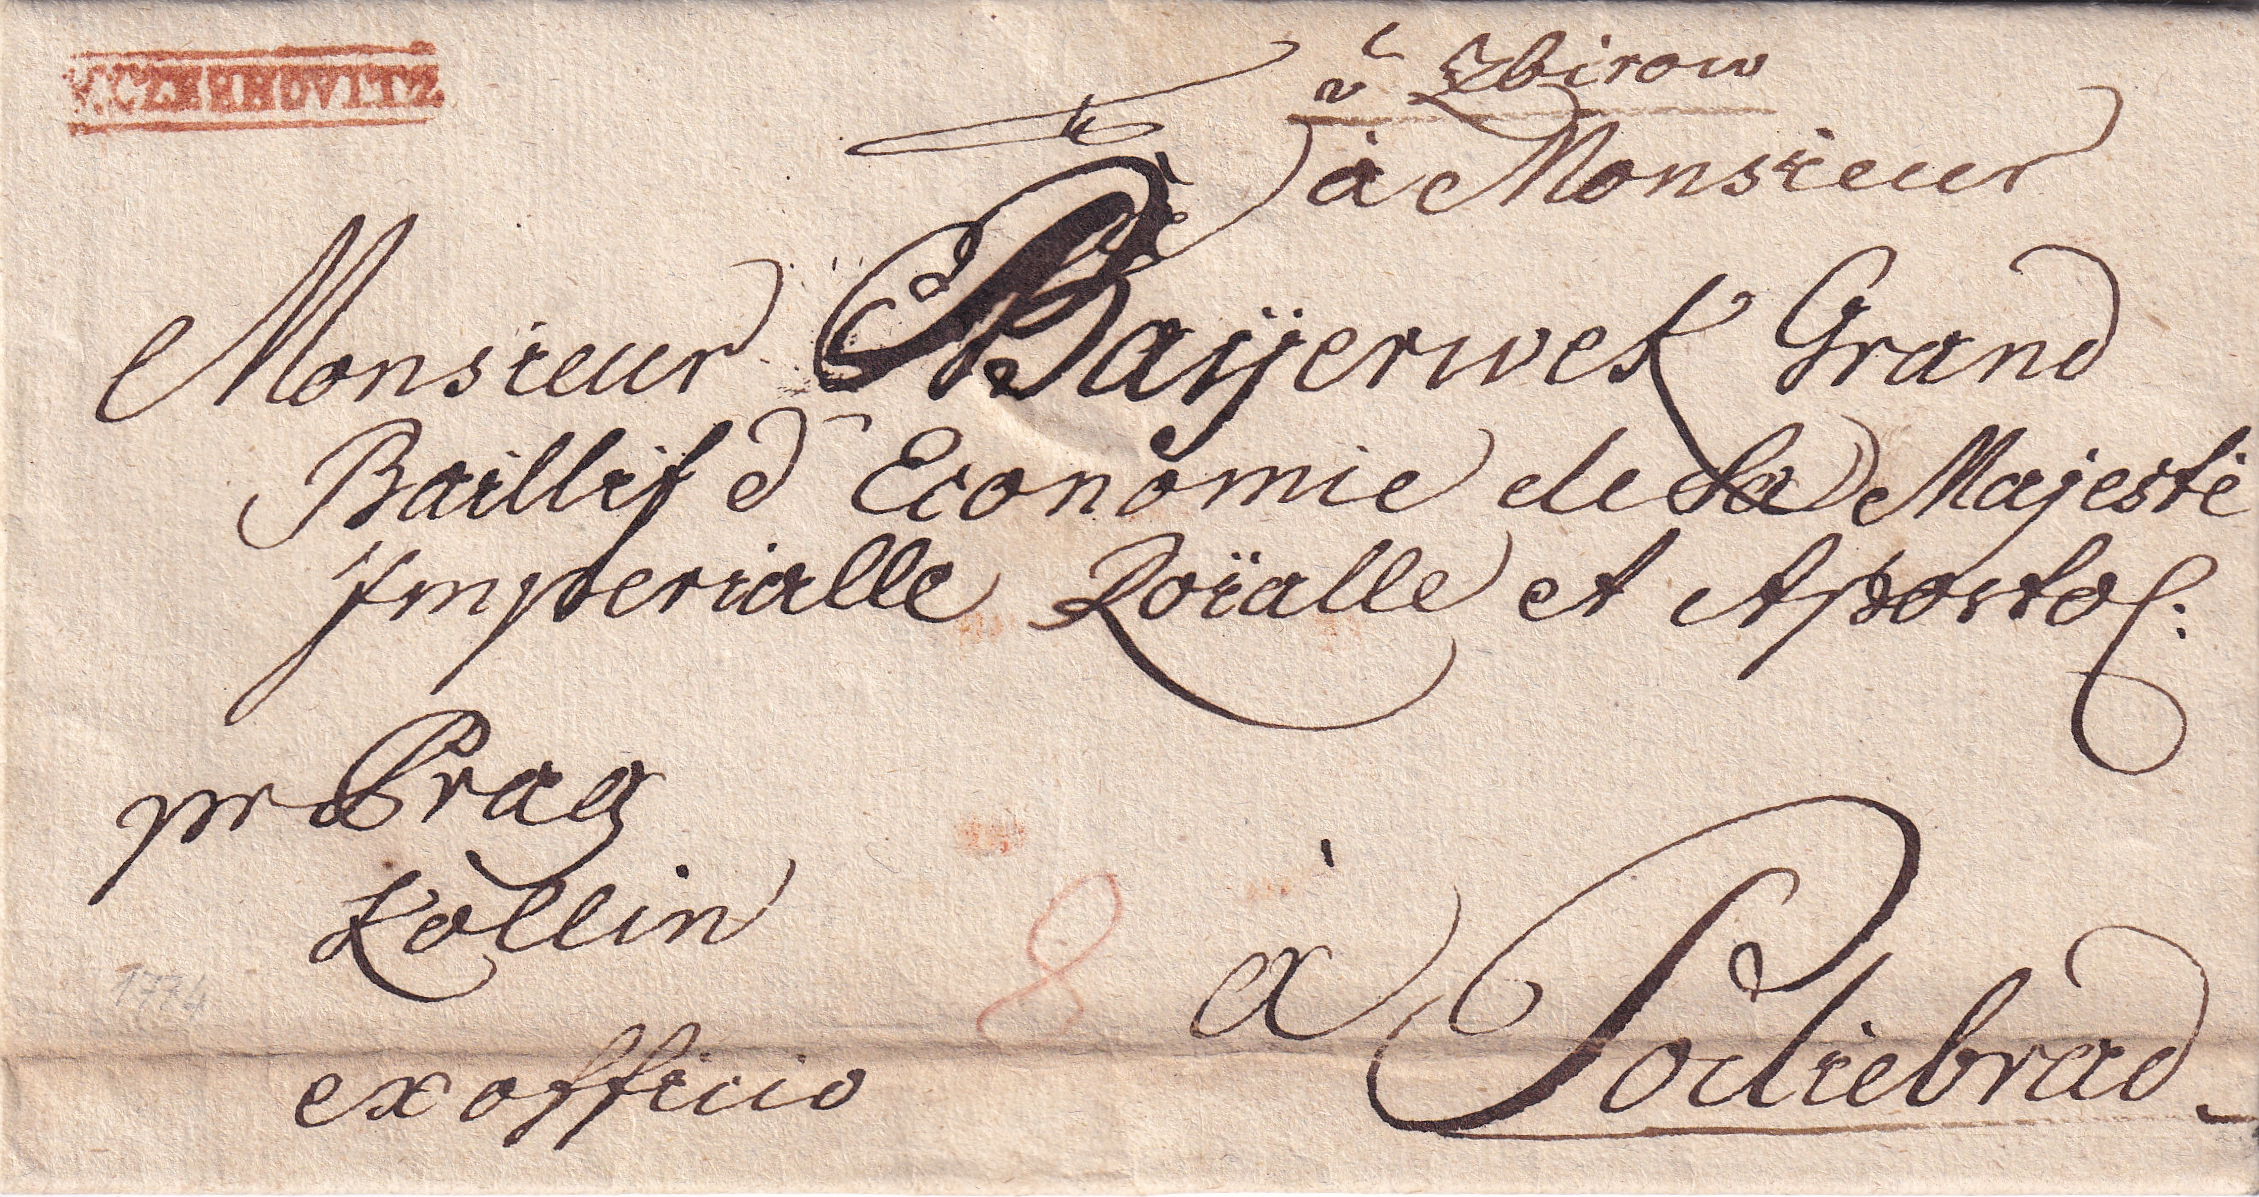 V.CZERHOVITZ
v Zbirow
à Monsieur
Monsieur Baÿerwek Grand
Baillif d'Economie de Sa Majesté
Imperialle Roïalle et Apostol:
pr Prag
Kollin
1774
8
à
Podiebrad
ex officio